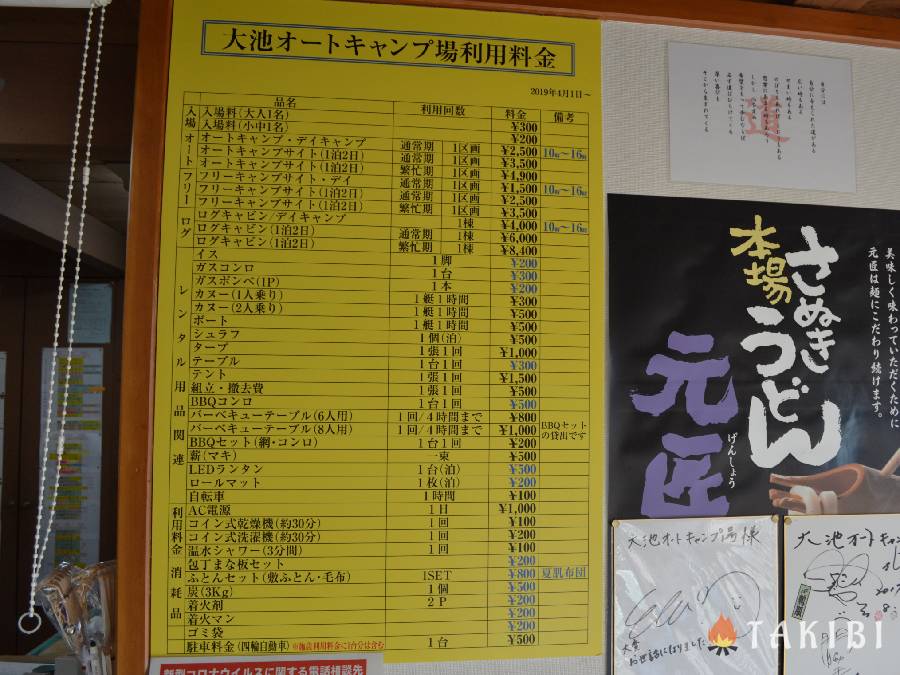 大池オートキャンプ場利用料金
2019年4月1日~
品名 利用回数 料金 備考
入場 入場料(大人1名) ¥300
入場料(小中1名) ¥200
オート オートキャンプ・デイキャンプ 通常期 1区画 ¥2,500 10時~16時
オートキャンプサイト(1泊2日) 通常期 1区画 ¥3,500
オートキャンプサイト(1泊2日) 繁忙期 1区画 ¥4,900
フリー フリーキャンプサイト・デイ 通常期 1区画 ¥1,500 10時~16時
フリーキャンプサイト(1泊2日) 通常期 1区画 ¥2,500
フリーキャンプサイト(1泊2日) 繁忙期 1区画 ¥3,500
ログ ログキャビン/デイキャンプ 1棟 ¥4,000 10時~16時
ログキャビン(1泊2日) 通常期 1棟 ¥6,000
ログキャビン(1泊2日) 繁忙期 1棟 ¥8,400
レンタル用品関連 イス 1脚 ¥200
ガスコンロ 1台 ¥300
ガスボンベ(1P) 1本 ¥200
カヌー(1人乗り) 1艇1時間 ¥300
カヌー(2人乗り) 1艇1時間 ¥500
ボート 1艇1時間 ¥500
シュラフ 1個(泊) ¥500
タープ 1張1回 ¥1,000
テーブル 1台1回 ¥300
テント 1張1回 ¥1,500
組立・撤去費 1張1回 ¥500
BBQコンロ 1台1回 ¥500
バーベキューテーブル(6人用) 1回/4時間まで ¥800 BBQセットの貸出です
バーベキューテーブル(8人用) 1回/4時間まで ¥1,000
BBQセット(網・コンロ) 1台1回 ¥200
薪(マキ) 一束
LEDランタン 1台(泊) ¥500
ロールマット 1枚(泊) ¥200
自転車 1時間 ¥100
利用料金 AC電源 1日 ¥1,000
コイン式乾燥機(約30分) 1回 ¥100
コイン式洗濯機(約30分) 1回 ¥200
温水シャワー(3分間) 1回 ¥100
消耗品 包丁まな板セット ¥200
ふとんセット(敷ふとん・毛布) 1SET ¥800 夏肌布団
炭(3Kg) 1個 ¥500
着火剤 2P ¥200
着火マン ¥200
ゴミ袋 ¥200
駐車料金(四輪自動車) ※施設利用料金に1台分は含む 1台 ¥500
新型コロナウイルスに関する電話相談先
道
本場
さぬきうどん
元匠
げんしょう
美味しく味わっていただくために
元匠は麺にこだわり続けます。
大池オートキャンプ場様
大変お世話になりました
大池オートキャンプ
2017
TAKIBI